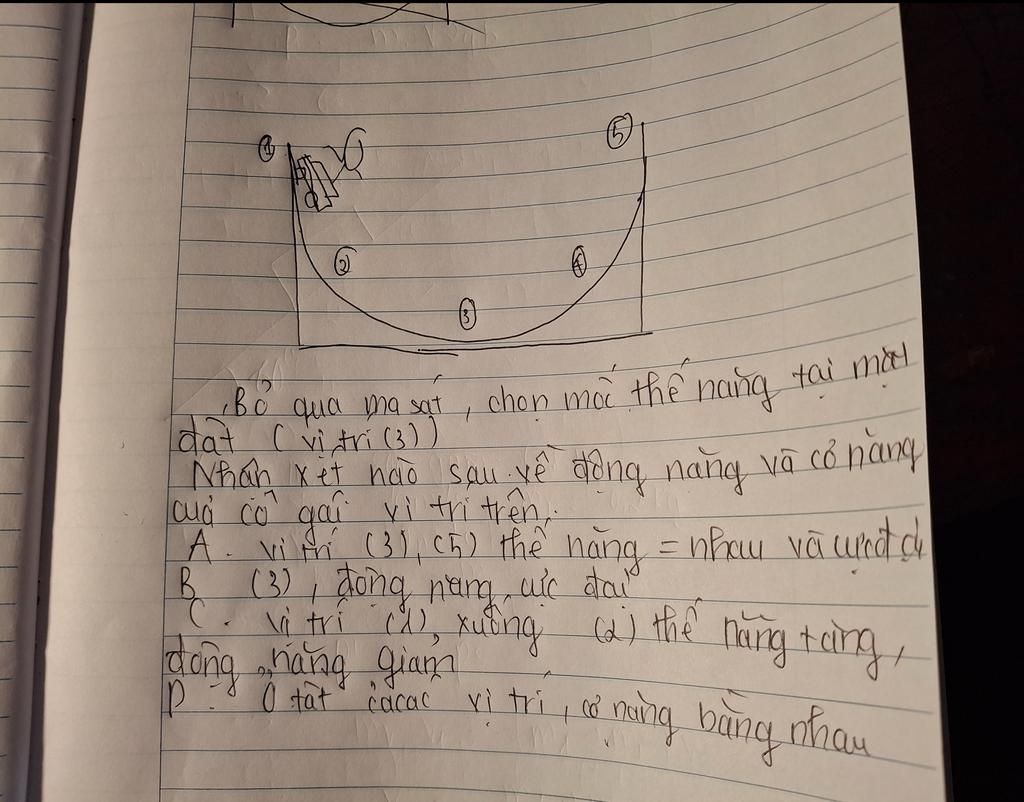 ①
⑤
②
④
③
Bỏ qua ma sát, chọn mốc thế năng tại mặt
đất (vị trí (3))
Nhận xét nào sau về động năng và cơ năng
của cô gái vị trí trên.
A. vị trí (3), (5) thế năng = nhau và cực đại
B (3), động năng cực đại
C. vị trí (1), xuống (2) thế năng tăng,
động năng giảm
D. Ở tất cả các vị trí, cơ năng bằng nhau